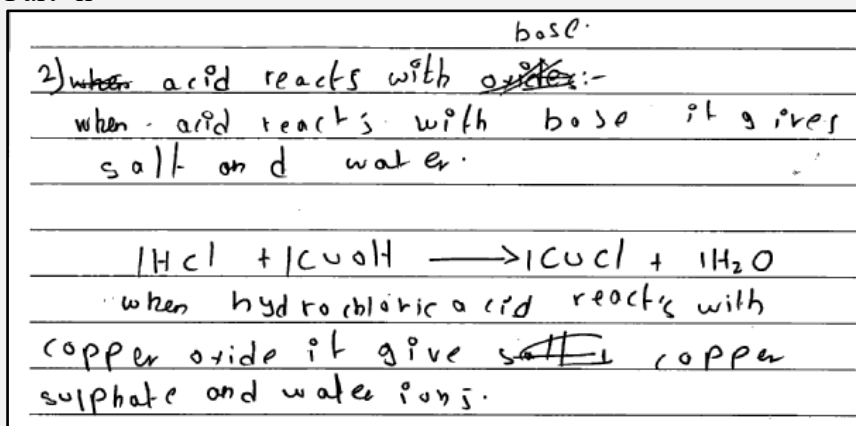 base.
2) when acid reacts with oxides:-
when acid react's with base it gives
salt and water.
1HCl + 1CuOH → 1CuCl + 1H₂O
when hydrochloric acid react's with
copper oxide it give salt copper
sulphate and water ions.